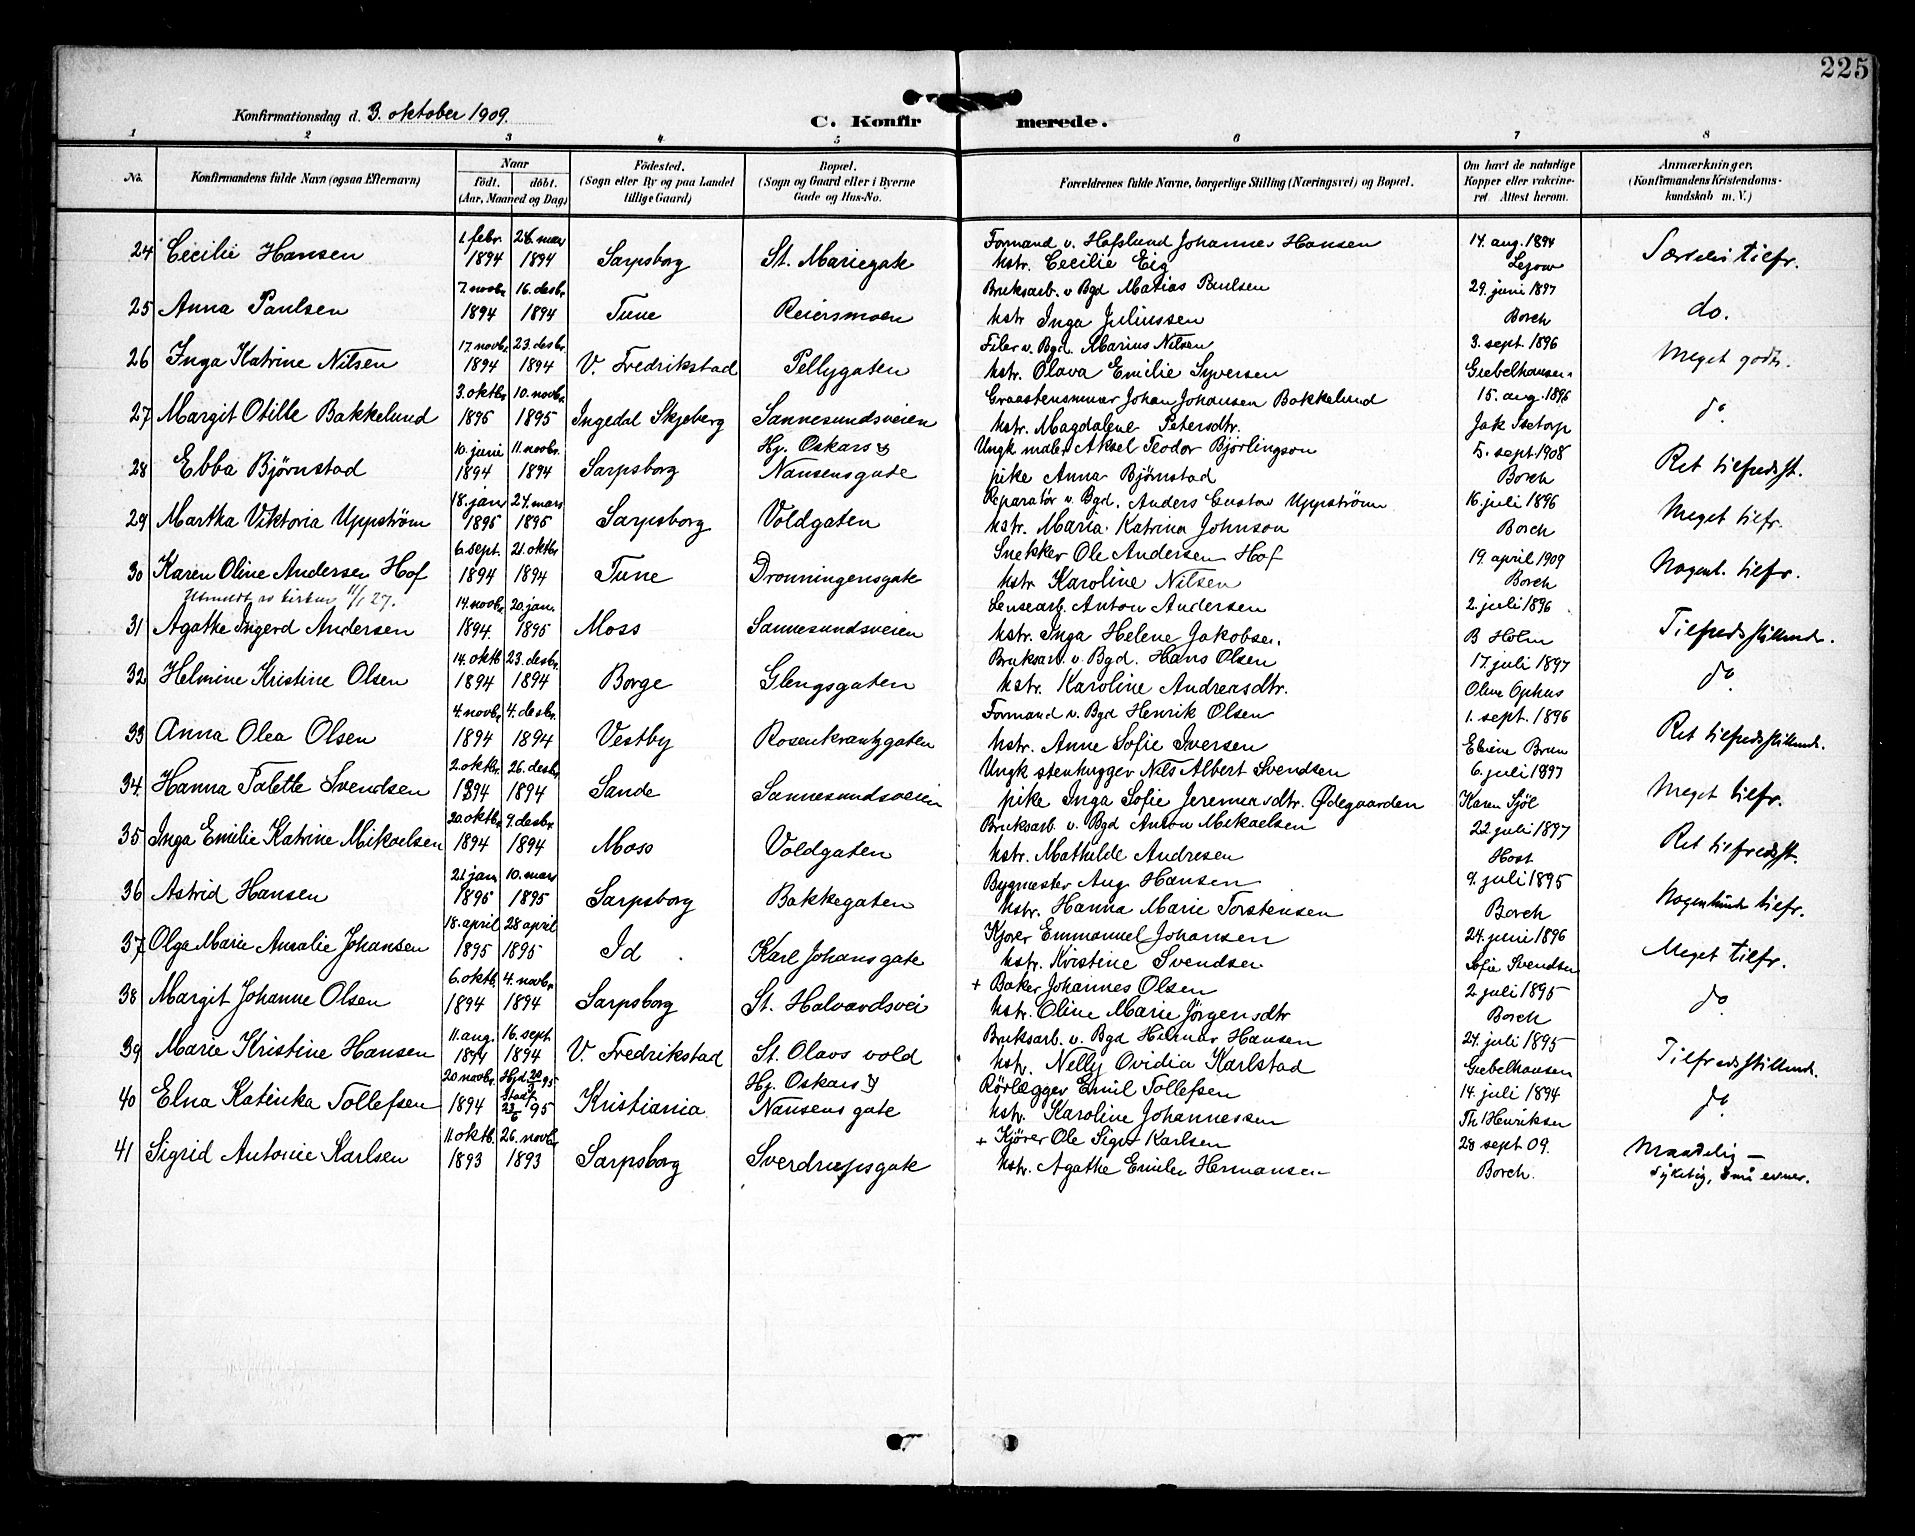 225
Konfirmationsdag d. 3. oktober 1909.
C. Konfirmerede.
1 2 3 4 5 6 7 8
No. Konfirmandens fulde Navn (ogsaa Efternavn) Naar født. døbt. (Aar, Maaned og Dag) Födested. (Sogn eller By og paa Landet tillige Gaard) Bopæl. (Sogn og Gaard eller i Byerne Gade og Hus-No. Forældrenes fulde Navne, borgerlige Stilling (Næringsvei) og Bopæl. Om havt de naturlige Kopper eller vakcineret. Attest herom. Anmærkninger. (Konfirmandens Kristendomskundskab m. V.)
1. febr. 26. mar Formand v. Hafslund Johannes Hansen 14. aug. 1894
24 Cecilie Hansen 1894 1894 Sarpsborg St. Mariegate hstr. Cecilie Eig Særdeles tilfr.
7. novbr. 16. desbr. Bruksarb. v Bgd Matias Paulsen 29. juni 1897
25 Anna Paulsen 1894 1894 Tune Reiersmoen hstr Inga Juliussen Borch do.
17 novbr. 23. desbr. Filer v. Bgd. Marius Nilsen 3. sept 1896
26 Inga Katrine Nilsen 1894 1894 V. Fredrikstad Pellygaten hstr. Olava Emilie Syversen Giebelhausen Meget godt.
3. oktbr. 10. novbr. Graastensmurer Johan Johansen Bakkelund 15. aug. 1896
27 Margit Otilie Bakkelund 1895 1895 Ingedal Skjeberg Sannesundsveien hstr. Magdalene Petersdtr. Jak Isetorp do
10. juni 11. novbr. Hj. Oskars & Ungk maler Aksel Teodor Björlingson 5. sept. 1908
28 Ebba Bjørnstad 1894 1894 Sarpsborg Nansensgate pike Anna Bjørnstad Borch Ret tilfredsst.
18. jan 24. mars Reparatör v. Bgd. Anders Gustav Uppström 16. juli 1896
29 Martha Viktoria Uppström 1895 1895 Sarpsborg Voldgaten hstr. Maria Katrina Johnson Borch Meget tilfr.
6. sept. 21. oktbr Snekker Ole Andersen Hof 19. april 1909
30 Karen Oline Andersen Hof 1894 1894 Tune Dronningensgate hstr. Karoline Nilsen Borch Nogenl. tilfr.
Utmeldt av kirken 11/1 27. 14. novbr. 20. jan. Lensearb. Anton Andersen 2. juli 1896
31 Agathe Ingerd Andersen 1894 1895 Moss Sannesundsveien hstr. Inga Helene Jakobsen. B Holm Tilfredsstillende.
14. oktb. 23. desbr. Bruksarb. v. Bgd. Hans Olsen 17. juli 1897
32 Helmine Kristine Olsen 1894 1894 Borge Glengsgaten hstr. Karoline Andreasdtr. Oline Ophus do
4. novbr. 4. desbr. Formand v. Bgd Henrik Olsen 1. sept. 1896
33 Anna Olea Olsen 1894 1894 Vestby Rosenkrantzgaten hstr. Anne Sofie Iversen Brun Ret tilfredsstillende.
2. oktbr. 26. desbr. Ungk stenhugger Nils Albert Svendsen 6. juli 1897
34. Hanna Talette Svendsen 1894 1894 Sande Sannesundsveien pike Inga Sofie Jeremiasdtr. Ødegaarden Karen Sjöl Meget tilfr.
20 oktbr. 9. desbr. Bruksarb. v. Bgd Anton Mikaelsen 22 juli 1897
35 Inga Emilie Katrine Mikaelsen 1894 1894 Moss Voldgaten hstr. Mathilde Andresen Host Ret tilfredsst.
21 jan 10. mars Bygmester Aug Hansen 9. juli 1895
36 Astrid Hansen 1895 1895 Sarpsborg Bakkegaten hstr. Hanna Marie Torstensen Borch Nogenlunde tilfr.
18. april 28 april Kjører Emmanuel Johansen 24. juni 1896
37 Olga Marie Auralie Johansen 1895 1895 Id Karl Johans gate hstr. Kristine Svendsen Sofie Svendsen Meget tilfr.
6. oktb. 4. novbr. + Baker Johannes Olsen 2 juli 1895
38 Margit Johanne Olsen 1894 1894 Sarpsborg St. Halvardsvei hstr. Oline Marie Jörgensdtr Borch do
11. aug. 16. sept Bruksarb. v. Bgd Hilmar Hansen 24. juli 1895
39 Marie Kristine Hansen 1894 1894 V. Fredrikstad St. Olavs vold hstr. Nelly Ovidia Karlstad Giebelhausen Tilfredsstillende.
20 novbr. Hjd. 20/ 95 Hj. Oskars & Rörlægger Emil Tollefsen 14. juli 1894
40 Elna Katinka Tollefsen 1894 Stadf 23/6 95 Kristiania Nansens gate hstr. Karoline Johannessen Th Henriksen do
11. oktb. 26. novbr + Kjörer Ole Sigv Karlsen 28 sept 09.
41 Sigrid Antonie Karlsen 1893 1893 Sarpsborg Sverdrupsgate hstr. Agathe Emilie Hermansen Borch. Maadelig –
Sykelig, små evner.